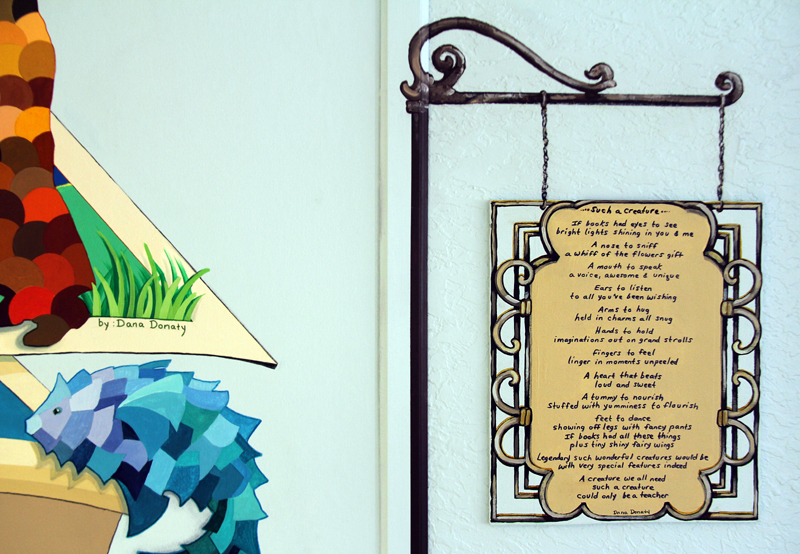 by: Dana Donaty
...Such a creature...
If books had eyes to see
bright lights shining in you & me
A nose to sniff
a whiff of the flowers gift
A mouth to speak
a voice, awesome & unique
Ears to listen
to all you've been wishing
Arms to hug
held in charms all snug
Hands to hold
imaginations out on grand strolls
Fingers to feel
linger in moments unpeeled
A heart that beats
loud and sweet
A tummy to nourish
Stuffed with yumminess to flourish
feet to dance
showing off legs with fancy pants
If books had all these things
plus tiny shiny fairy wings
Legendary such wonderful creatures would be
with very special features indeed
A creature we all need
such a creature
could only be a teacher
Dana Donaty